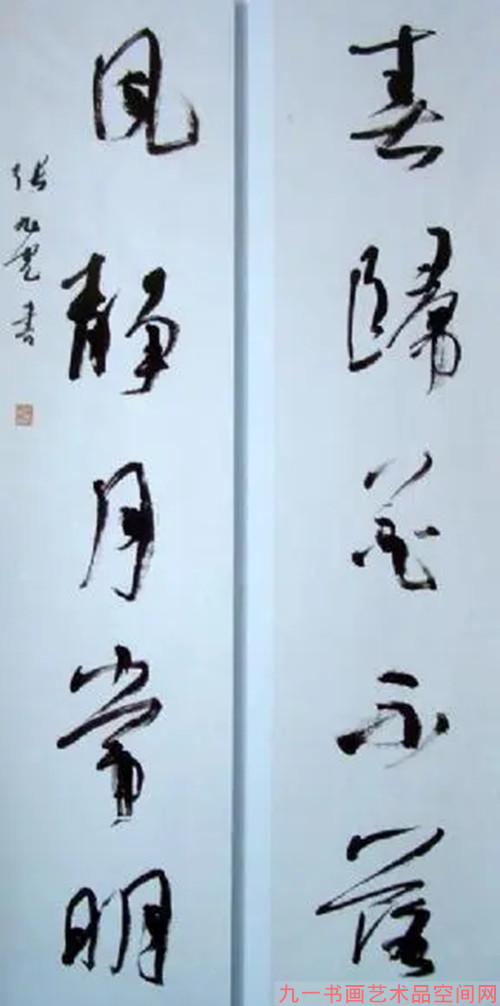 春歸花不落
風静月常明
張旭光書
九一书画艺术品空间网